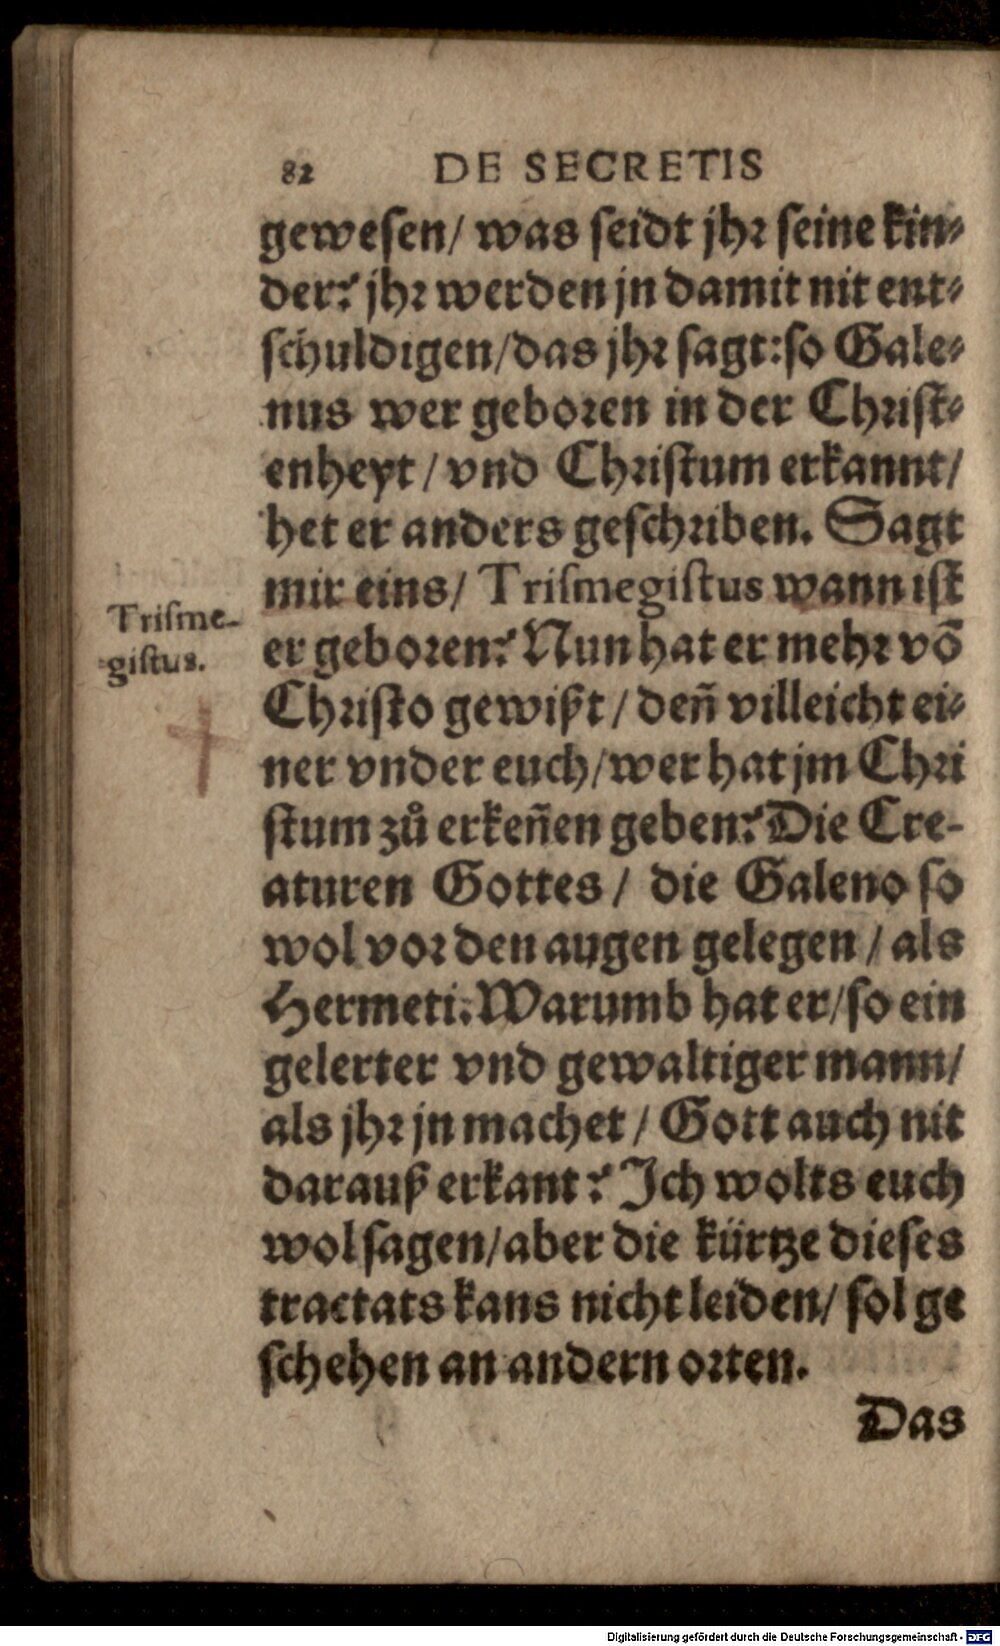 82 DE SECRETIS
gewesen/ was seidt jhr seine kin⸗
der? jhr werden jn damit nit ent⸗
schuldigen/das jhr sagt:so Gale⸗
nus wer geboren in der Christ⸗
enheyt / vnd Christum erkannt/
het er anders geschriben. Sagt
mir eins/ Trismegistus wann ist
er geboren? Nun hat er mehr võ
Christo gewißt / deñ villeicht ei⸗
ner vnder euch/wer hat jm Chri
stum zů erkeñen geben? Die Cre-
aturen Gottes / die Galeno so
wol vor den augen gelegen / als
Hermeti. Warumb hat er/so ein
gelerter vnd gewaltiger mann/
als jhr jn machet / Gott auch nit
darauß erkant? Ich wolts euch
wol sagen/aber die kürtze dieses
tractats kans nicht leiden/ sol ge
schehen an andern orten.
Das
Trisme-
gistus.
Digitalisierung gefördert durch die Deutsche Forschungsgemeinschaft - DFG